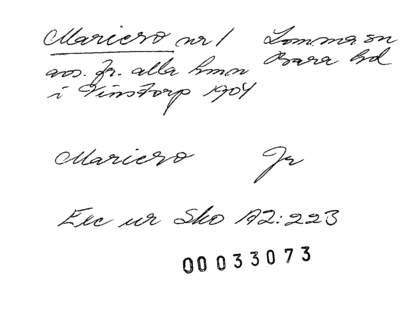 Maricro nr 1 Lomma sn
avs. fr. alla hmn Bara hd
i Vinstorp 1904
Maricro Jr
Exc ur Sko A2:223
00033073